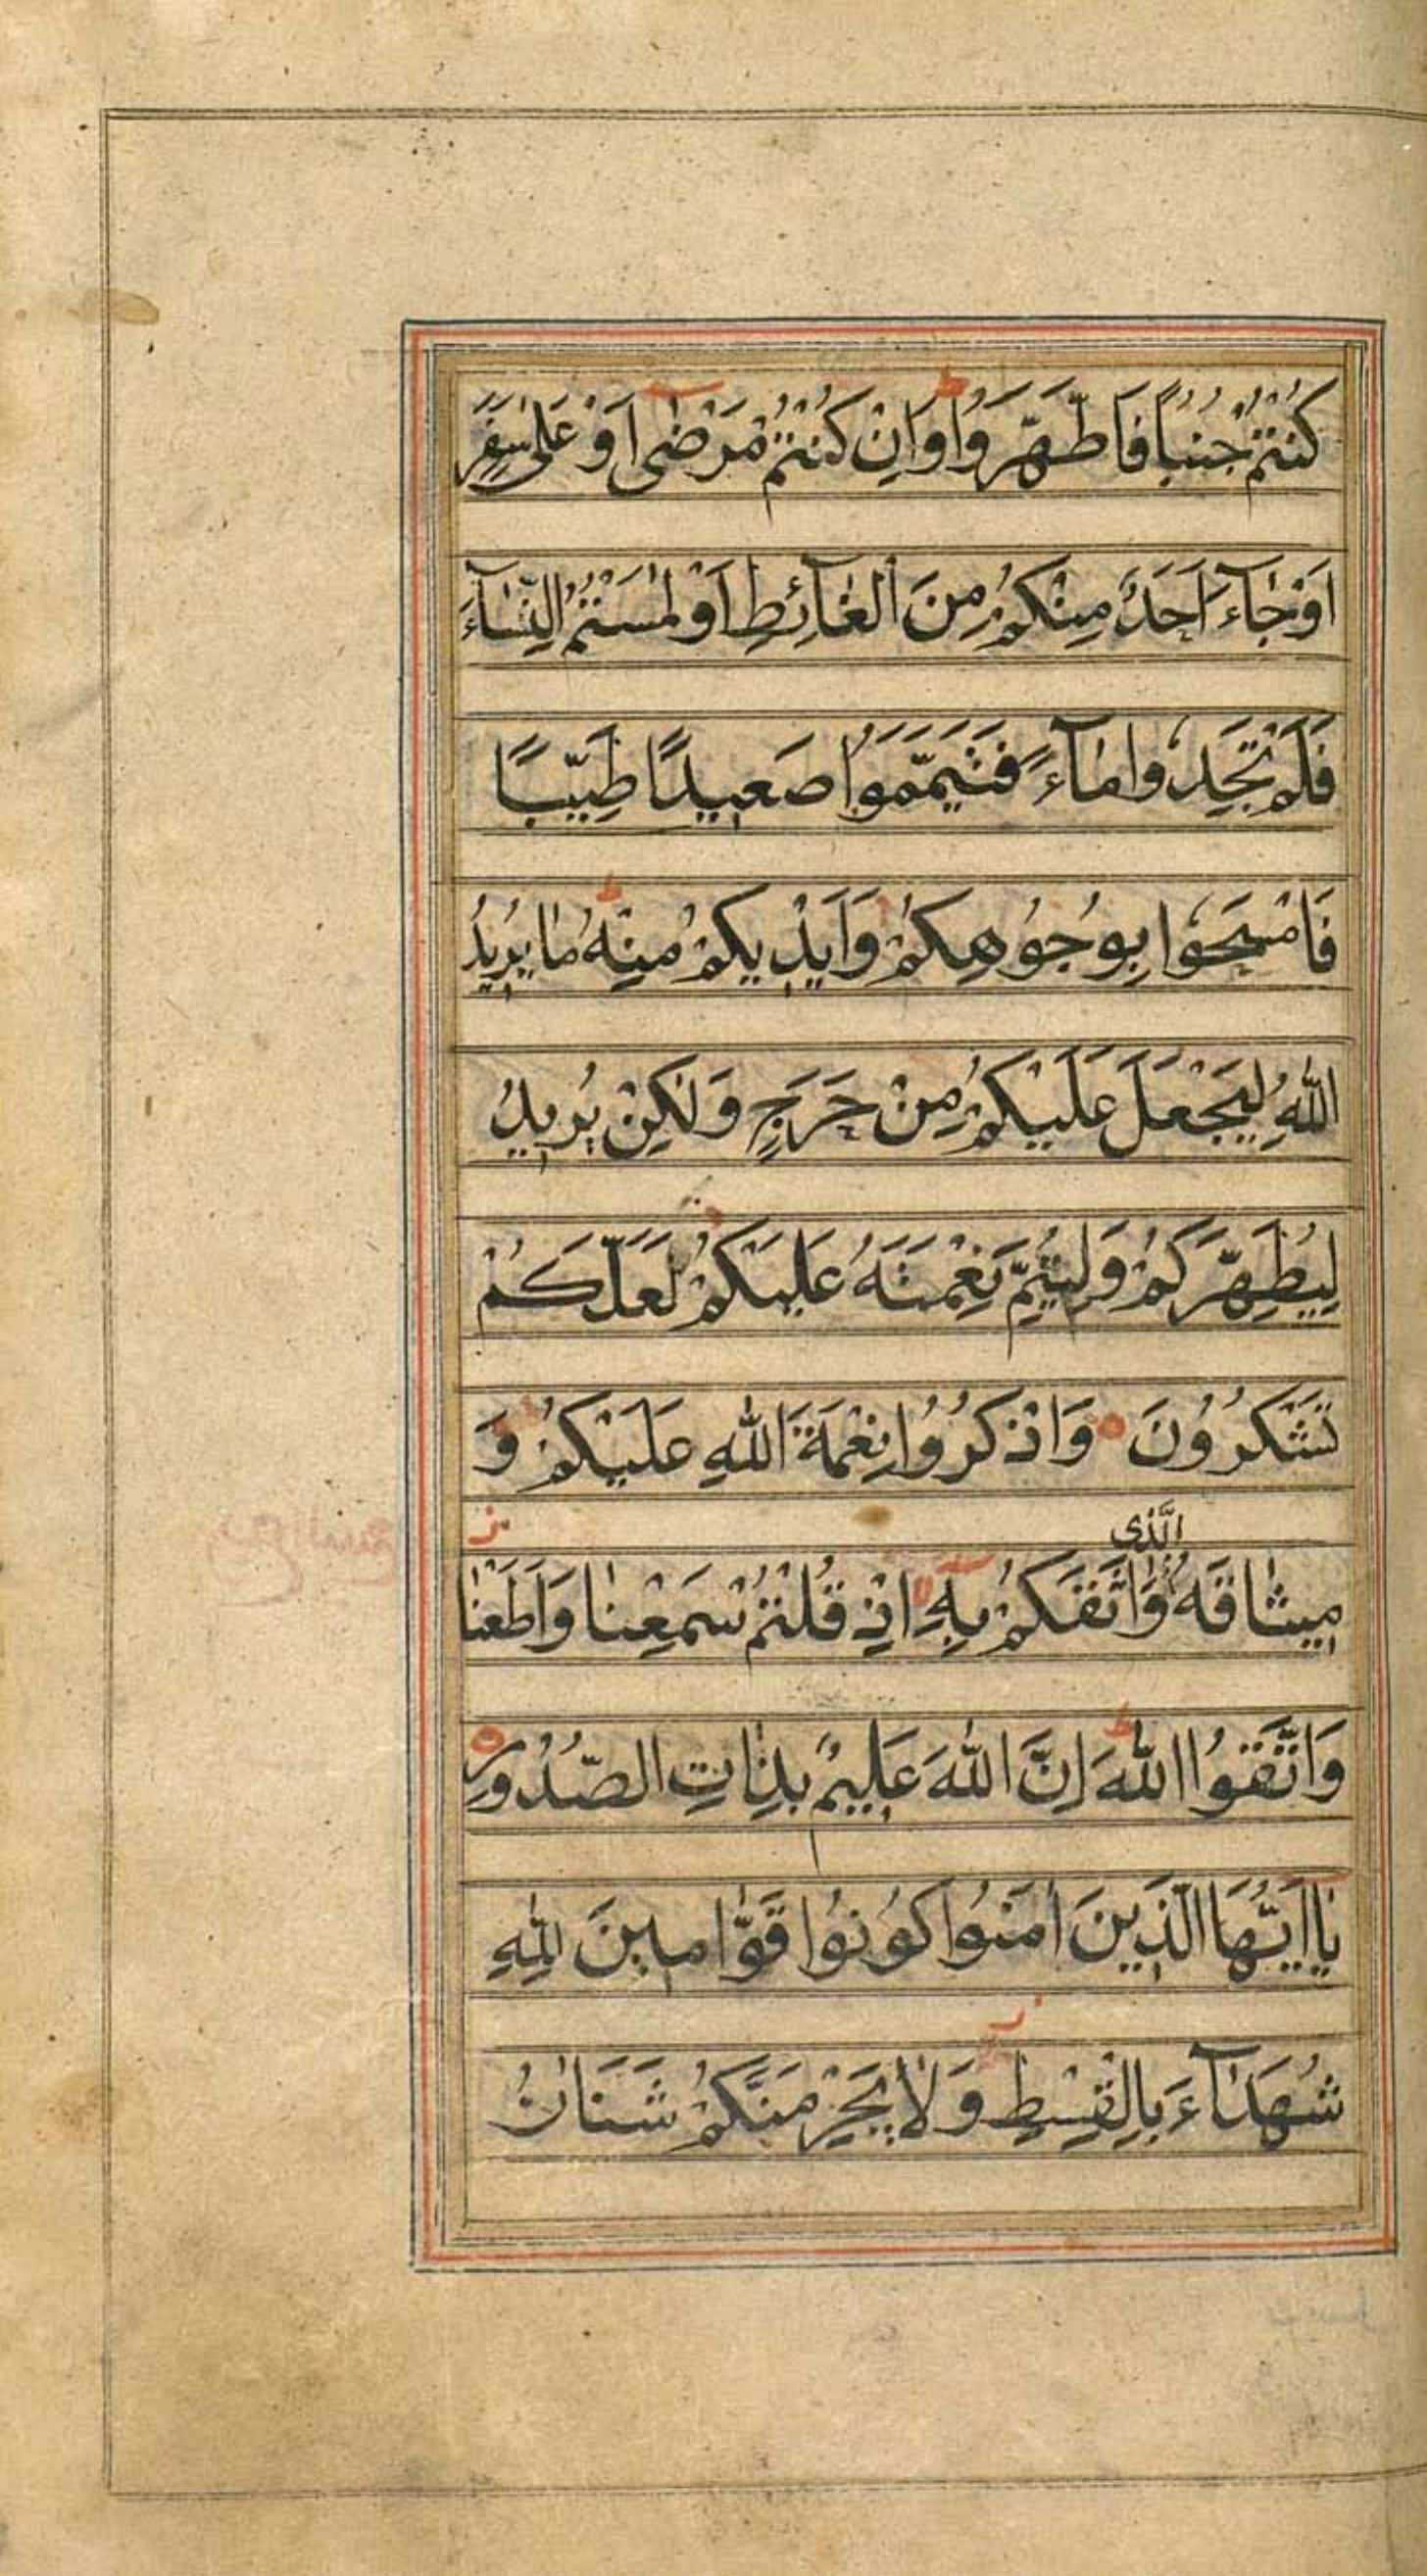 كُنْتُمْ جُنُبًا فَاطَّهَّرَوُا وَاِنْ كُنْتُمْ مَرْضٰى اَوْ عَلٰى سَفَرٍ
اَوْ جَآءَ اَحَدٌ مِنْكُمْ مِنَ الْغَآئِطِ اَوْ لٰمَسْتُمُ النِّسَآءَ
فَلَمْ تَجِدُوا مَآءً فَتَيَمَّمَوُا صَعِيدًا طَيِّبًا
فَامْسَحُوا بِوُجُوُهِكُمْ وَاَيْدِيكُمْ مِنْهُ مٰا يُرِيدُ
اللّٰهُ لِيَجْعَلَ عَلَيْكُمْ مِنْ حَرَجٍ وَلٰكِنْ يُرِيدُ
لِيُطَهِّرَكُمْ وَلِيُتِمَّ نِعْمَتَهُ عَلَيْكُمْ لَعَلَّكُمْ
تَشْكُرُوُنَ وَاذْكُرُوُا نِعْمَةَ اللّٰهِ عَلَيْكُمْ وَ
الَّذى
مِيثٰاقَهُ وٰاثَقَكُمْ بِهِ اِذْ قُلْتُمْ سَمِعْنٰا وَاَطَعْنٰا
وَاتَّقُوُا اللّٰهَ اِنَّ اللّٰهَ عَلِيمٌ بِذٰاتِ الصُّدُوُرِ
يٰا اَيُّهَا الَّذِينَ اٰمَنُوا كُوُنُوُا قَوّٰامِينَ لِلّٰهِ
شُهَدَآءَ بِالْقِسْطِ وَلٰا يَجْرِمَنَّكُمْ شَنَاٰنُ